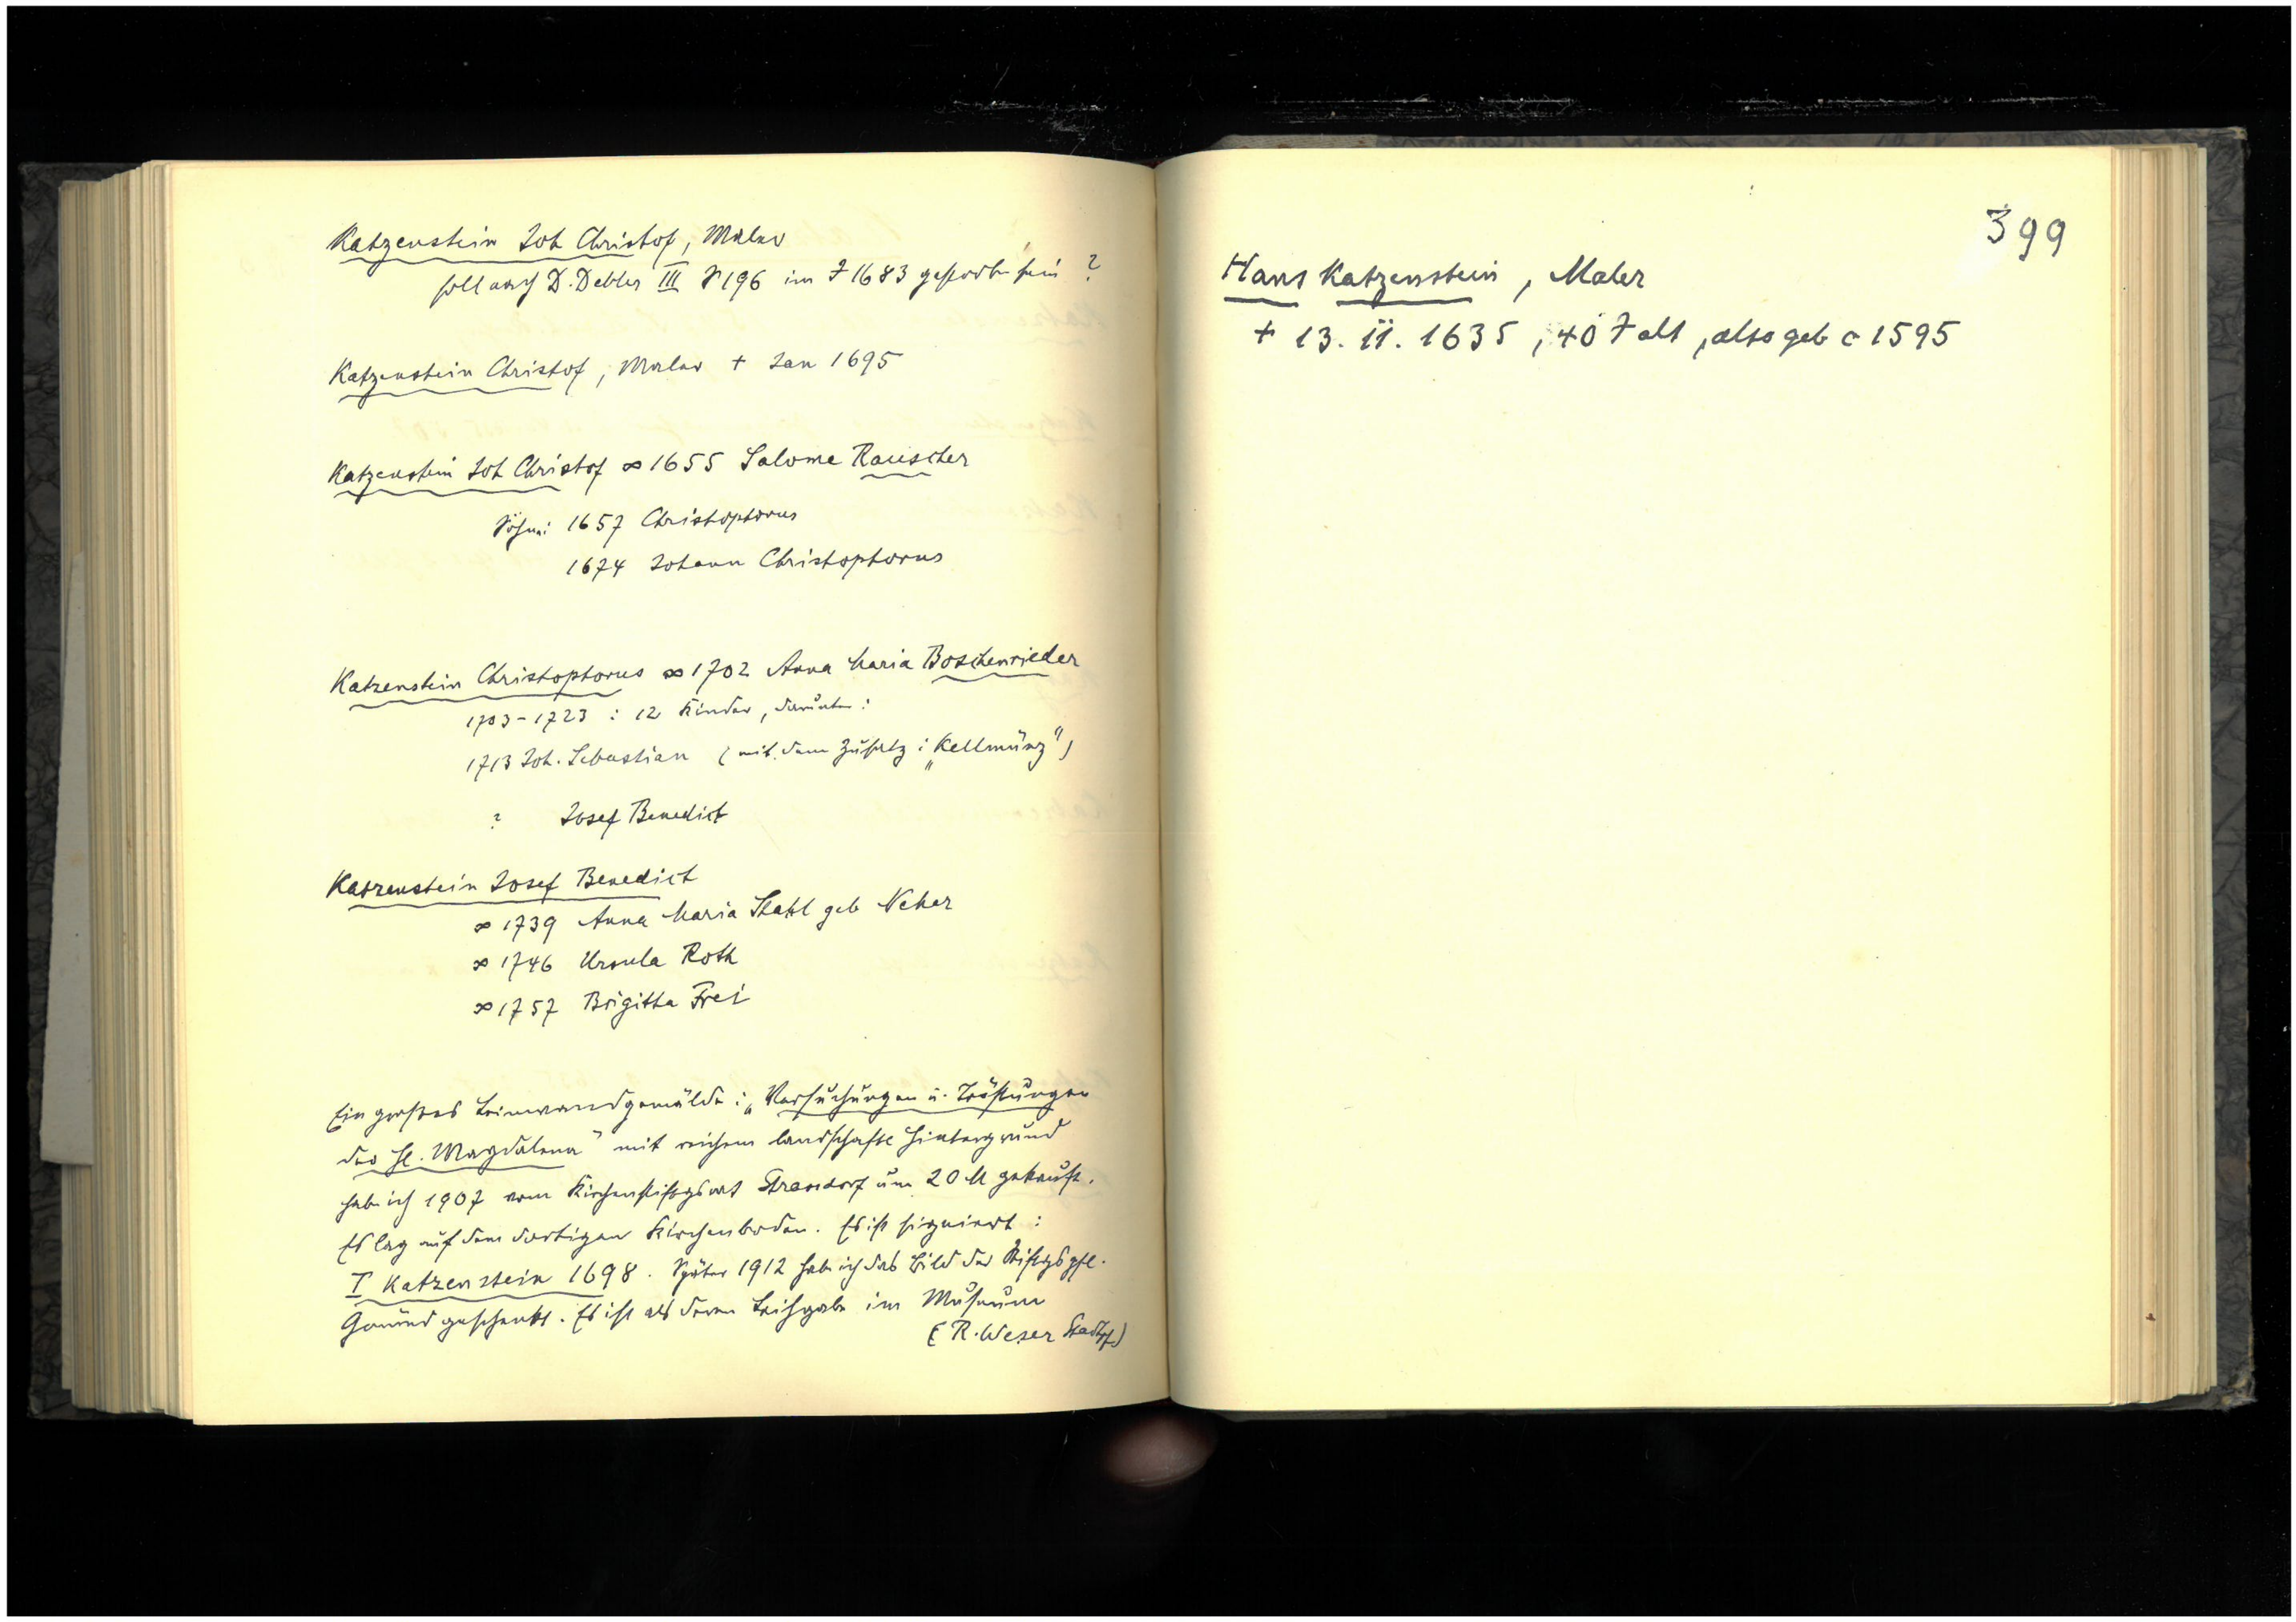 Katzenstein Joh Christof, Maler
soll nach D. Debler III S 196 im J 1683 gestorben sein ?
Katzenstein Christof, Maler + Jan 1695
Katzenstein Joh Christof ∞ 1655 Salome Rauscher
Söhne: 1657 Christophorus
1674 Johann Christophorus
Katzenstein Christophorus ∞ 1702 Anna Maria Boschenrieder
1703-1723 : 12 Kinder, darunter :
1713 Joh. Sebastian (mit dem Zusatz : „Kellmünz")
? Josef Benedict
Katzenstein Josef Benedict
∞ 1739 Anna Maria Stahl geb Neher
∞ 1746 Ursula Roth
∞ 1757 Brigitta Frei
Ein großes Leinwandgemälde : „Versuchungen u. Tröstungen
der hl. Magdalena" mit reichem landschaftl Hintergrund
habe ich 1907 vom Kirchenstiftgsrat Strassdorf um 20 M gekauft.
Es lag auf dem dortigen Kirchenboden. Es ist signiert :
I Katzenstein 1698. Später 1912 habe ich das Bild der Stiftgspfl.
Gmünd geschenkt. Es ist als deren Leihgabe im Museum
(R. Weser Stadtpf)
399
Hans Katzenstein, Maler
+ 13. 11. 1635, 40 J alt, also geb c 1595